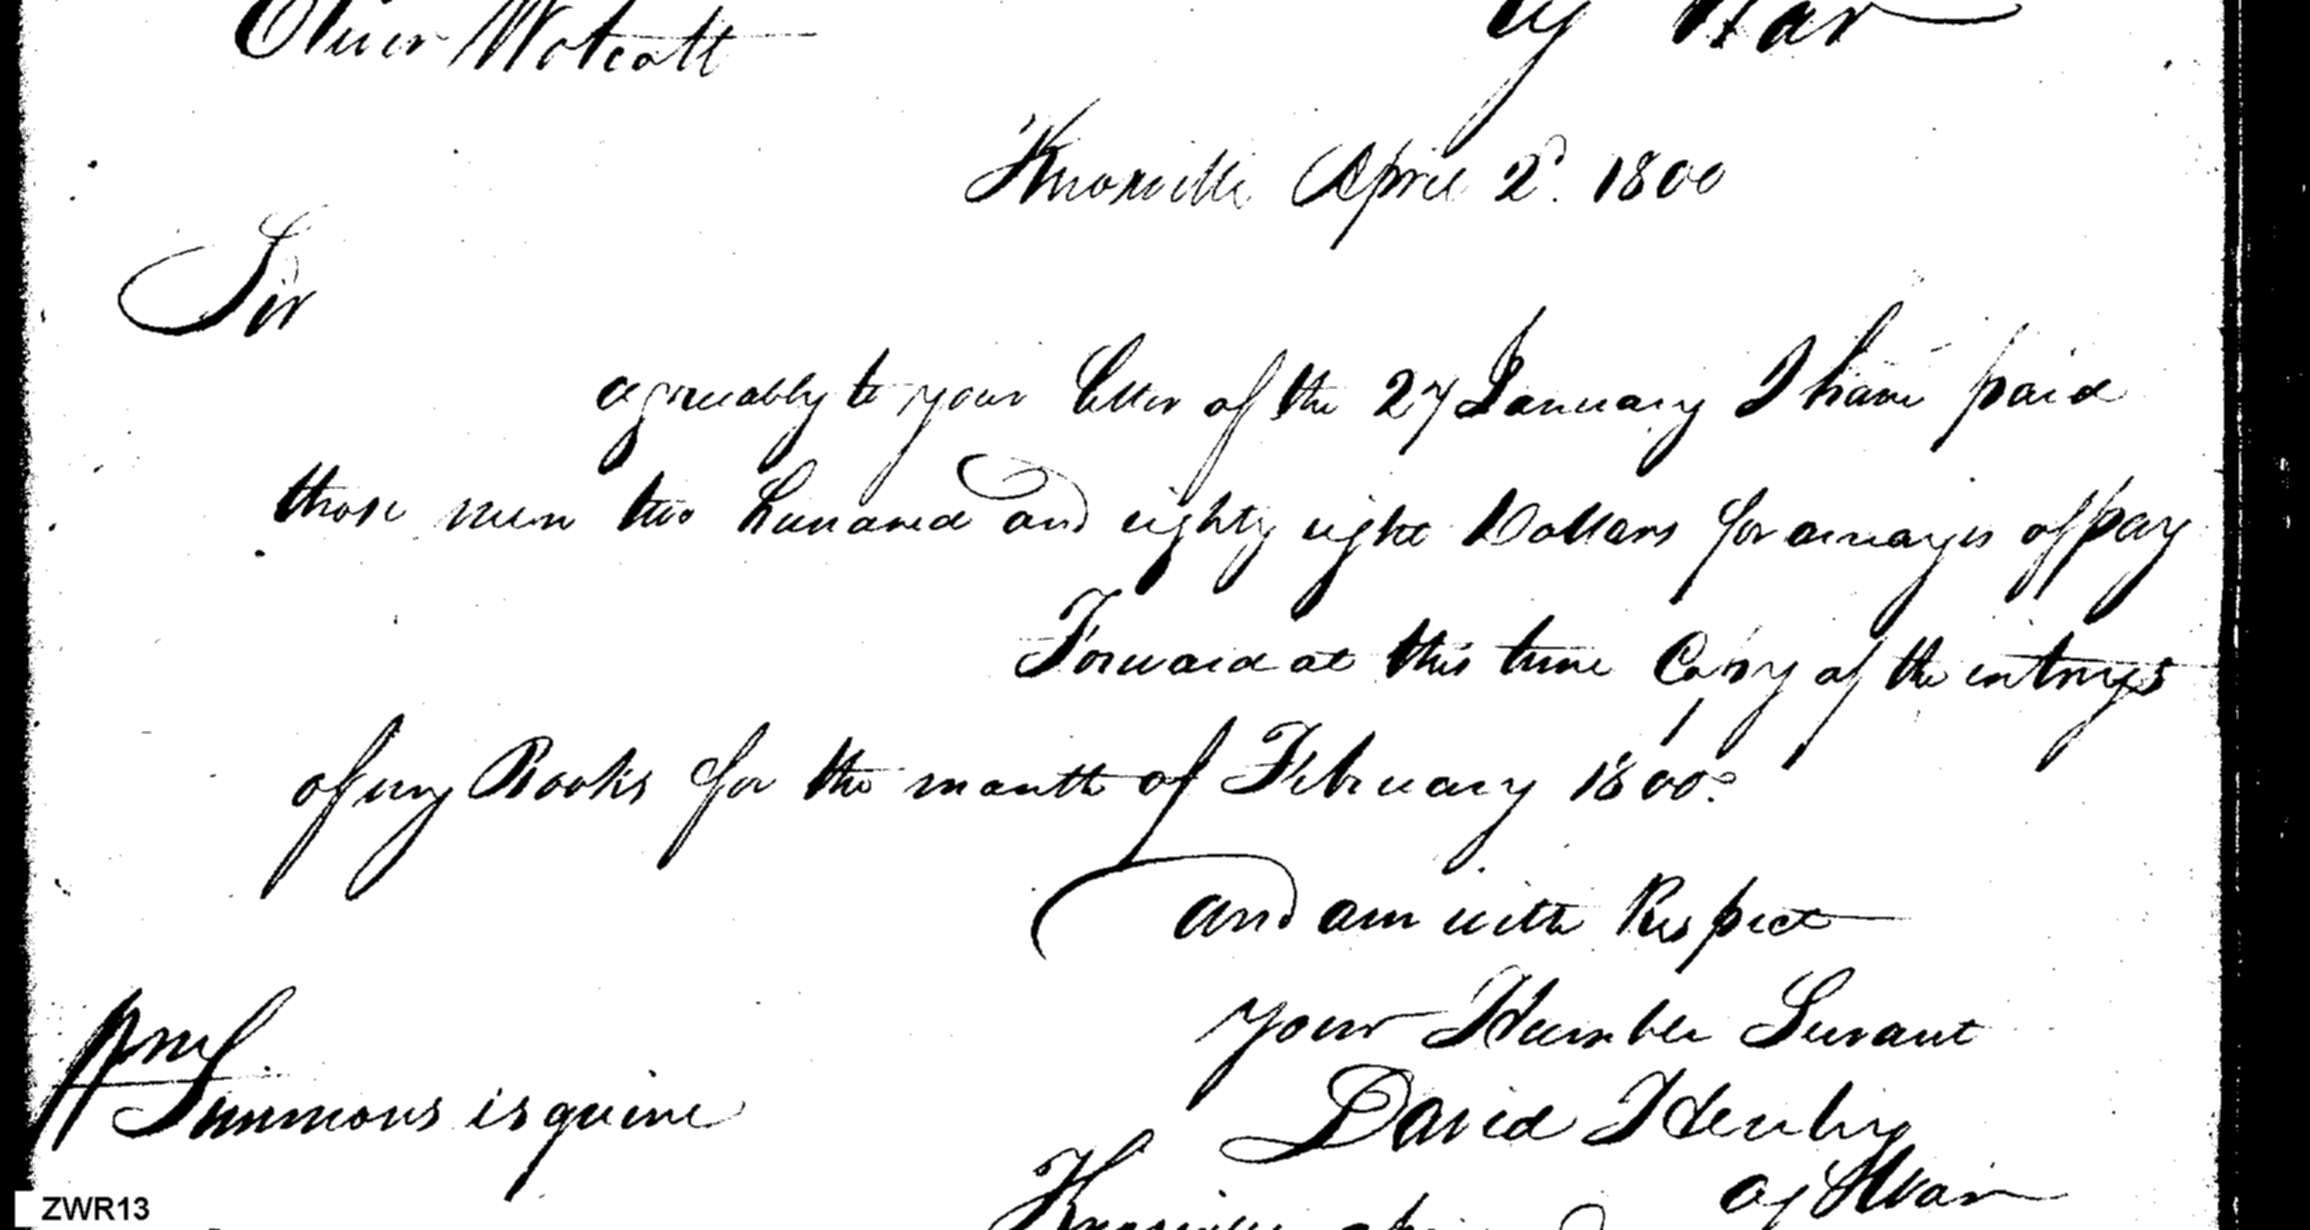 Oliver Wolcott
Ag War
Knoxville April 2d. 1800
Sir
agreeably to your letter of the 27 January I have paid
those men two hundred and eighty eight Dollars for arrages of pay
Forward at this time Copy of the entryes
of my Books for the month of February 1800.
and am with Respect
your Humble Servant
David Henley
Ag War
Wm Simmons esquire
Knoxville
ZWR13